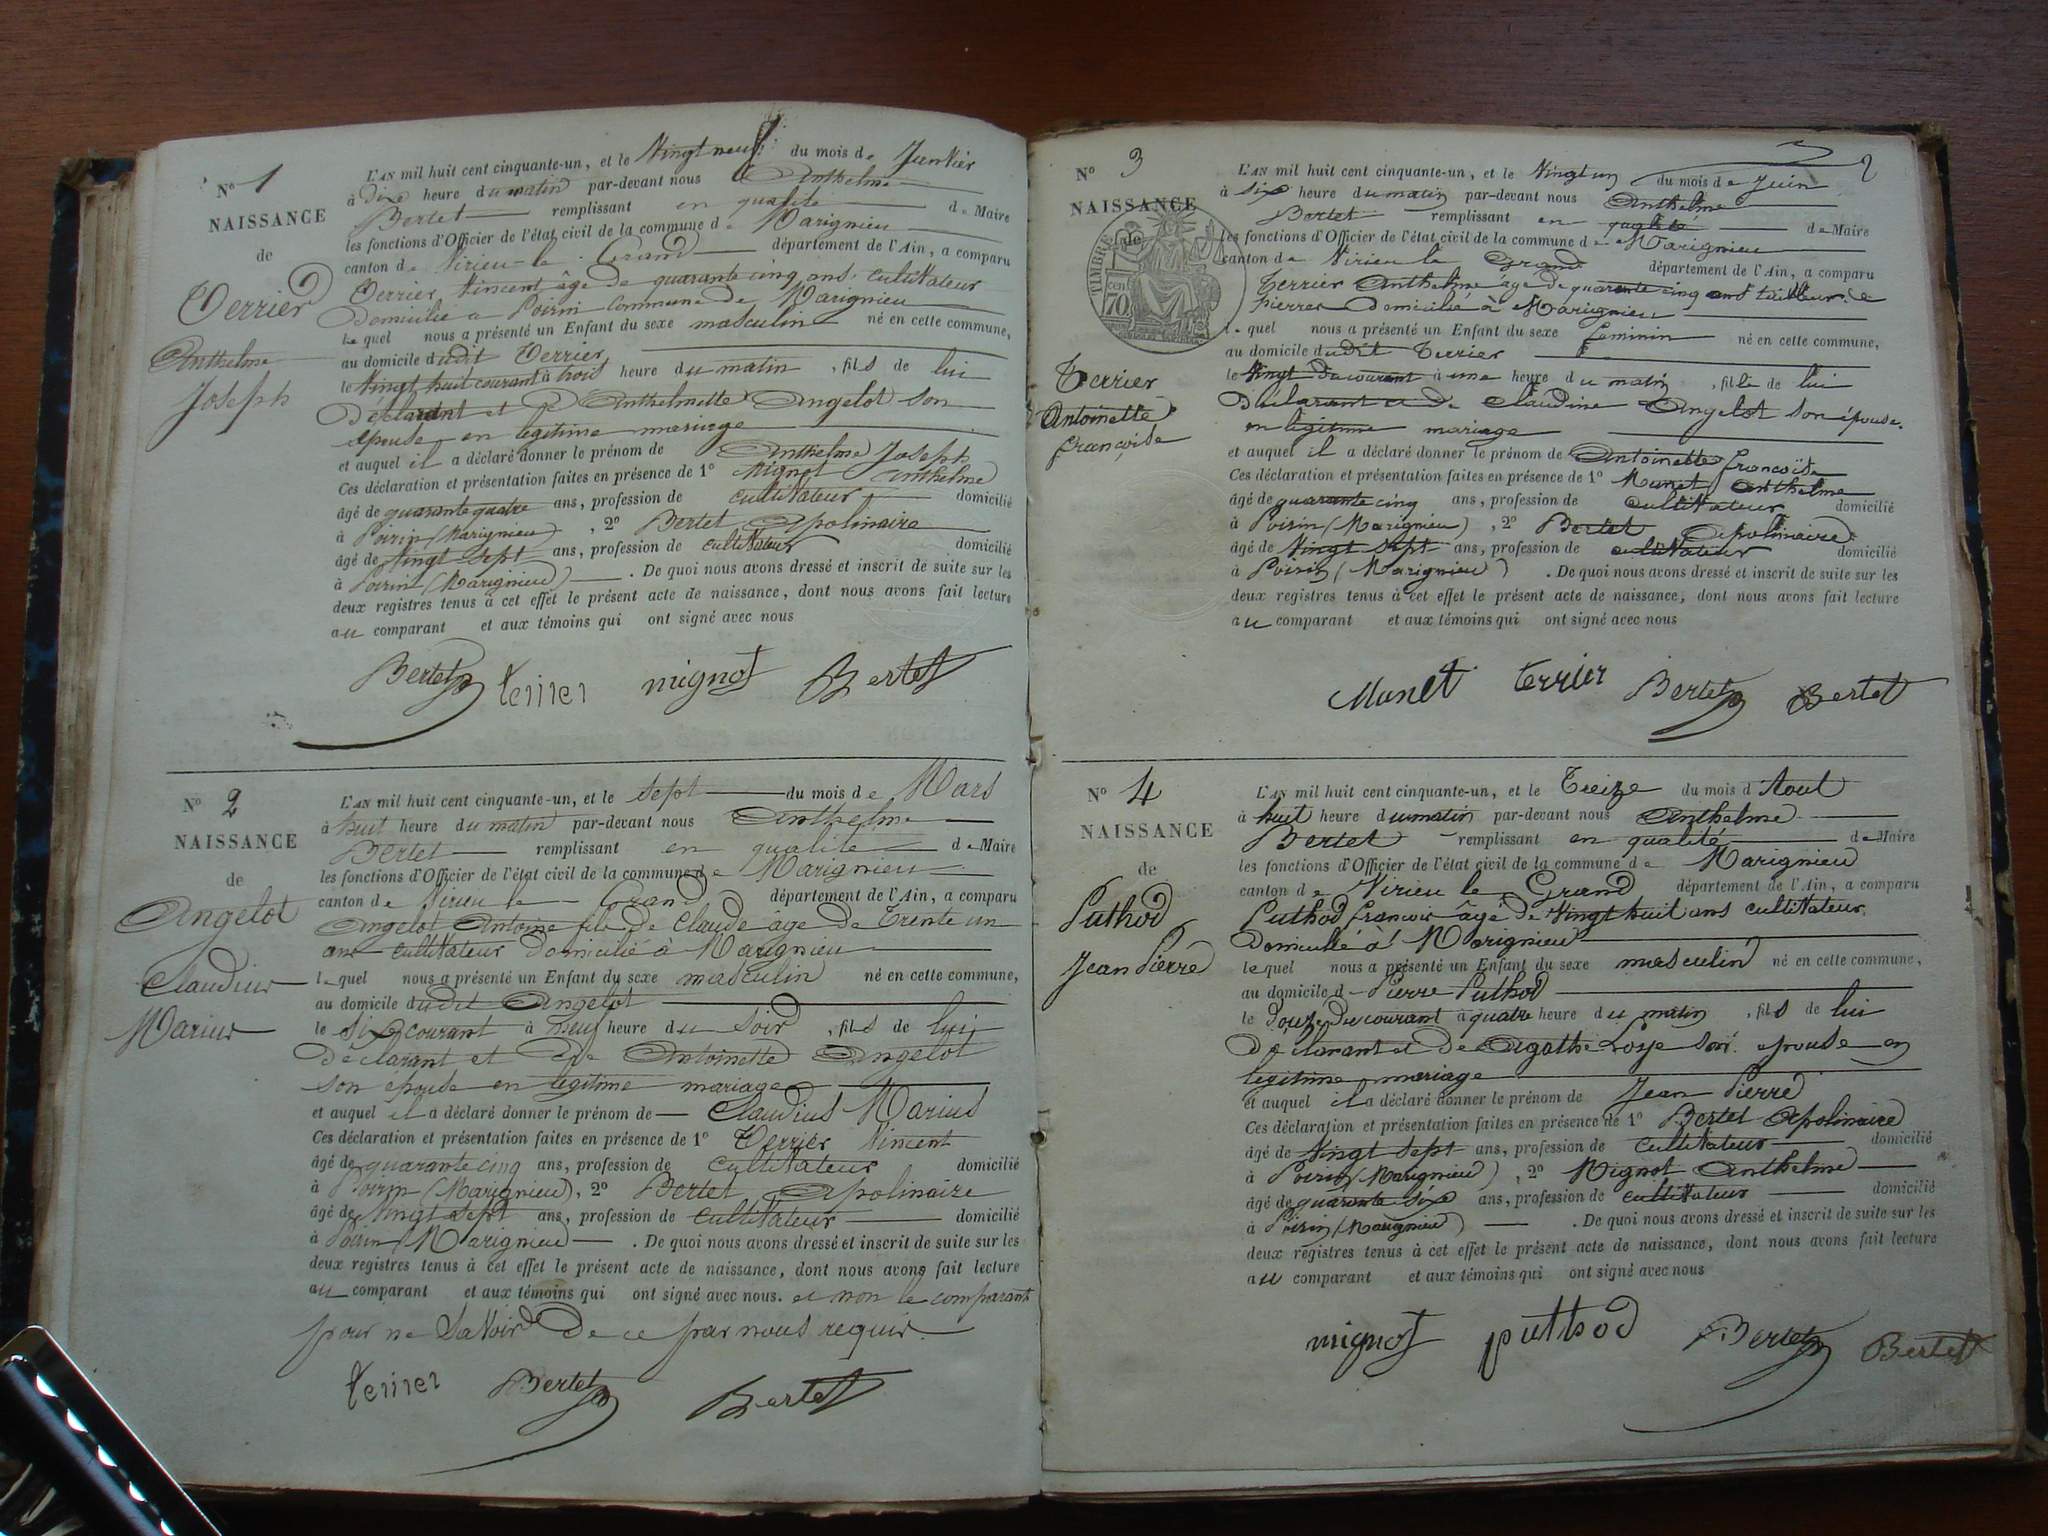 N° 1
NAISSANCE
de
Terrier
Anthelme
Joseph
L'AN mil huit cent cinquante-un, et le Vingt neuf du mois de Janvier
à dixe heure du matin par-devant nous Anthelme
Bertet remplissant en qualité de Maire
les fonctions d'Officier de l'état civil de la commune de Marignieu
canton de Virieu-le-Grand département de l'Ain, a comparu
Terrier Vincent âge de quarante cinq ans, cultivateur
Domicilié a Poirin commune de Marignieu
le quel nous a présenté un Enfant du sexe masculin né en cette commune,
au domicile dudit Terrier
le Vingt huit courant à trois heure du matin, fils de lui
Déclarant et de Anthelmette Angelot son
épouse en legitime mariage
et auquel il a déclaré donner le prénom de Anthelme Joseph
Ces déclaration et présentation faites en présence de 1° Mignot Anthelme
âgé de quarante quatre ans, profession de cultivateur domicilié
à Poirin (Marignieu), 2° Bertet Apolinaire
âgé de Vingt sept ans, profession de cultivateur domicilié
à Poirin (Marignieu). De quoi nous avons dressé et inscrit de suite sur les
deux registres tenus à cet effet le présent acte de naissance, dont nous avons fait lecture
au comparant et aux témoins qui ont signé avec nous
Bertet terrier mignot Bertet
N° 2
NAISSANCE
de
Angelot
Claudius
Marius
L'AN mil huit cent cinquante-un, et le sept du mois de Mars
à huit heure du matin par-devant nous Anthelme
Bertet remplissant en qualité de Maire
les fonctions d'Officier de l'état civil de la commune de Marignieu
canton de Virieu le Grand département de l'Ain, a comparu
Angelot Antoine fils de Claude âge de Trente un
ans cultivateur domicilié à Marignieu
le quel nous a présenté un Enfant du sexe masculin né en cette commune,
au domicile dudit Angelot
le six courant à neuf heure du soir, fils de lui
Déclarant et de Antoinette Angelot
son épouse en légitime mariage
et auquel il a déclaré donner le prénom de Claudius Marius
Ces déclaration et présentation faites en présence de 1° Terrier Vincent
âgé de quarante cinq ans, profession de cultivateur domicilié
à Poirin (Marignieu), 2° Bertet Apolinaire
âgé de Vingt sept ans, profession de cultivateur domicilié
à Poirin (Marignieu. De quoi nous avons dressé et inscrit de suite sur les
deux registres tenus à cet effet le présent acte de naissance, dont nous avons fait lecture
au comparant et aux témoins qui ont signé avec nous. et non le comparant
pour ne Savoir de ce par nous requis.
terrier Bertet Bertet
2
N° 3
NAISSANCE
de
TIMBRE
70
Terrier
Antoinette
françoise
L'AN mil huit cent cinquante-un, et le Vingt un du mois de Juin
à six heure du matin par-devant nous Anthelme
Bertet remplissant en qualité de Maire
les fonctions d'Officier de l'état civil de la commune de Marignieu
canton de Virieu le Grand département de l'Ain, a comparu
Terrier Anthelme âgé de quarante cinq ans tailleur de
pierres Domicilié à Marignieu
le quel nous a présenté un Enfant du sexe feminin né en cette commune,
au domicile dudit Terrier
le Vingt du courant à une heure du matin, fille de lui
Déclarant et de Claudine Angelot son épouse
en légitime mariage
et auquel il a déclaré donner le prénom de Antoinette françoise
Ces déclaration et présentation faites en présence de 1° Munet Anthelme
âgé de quarante cinq ans, profession de cultivateur domicilié
à Poirin (Marignieu), 2° Bertet Apolinaire
âgé de Vingt sept ans, profession de cultivateur domicilié
à Poirin (Marignieu). De quoi nous avons dressé et inscrit de suite sur les
deux registres tenus à cet effet le présent acte de naissance, dont nous avons fait lecture
au comparant et aux témoins qui ont signé avec nous
Munet terrier Bertet Bertet
N° 4
NAISSANCE
de
Puthod
Jean Pierre
L'AN mil huit cent cinquante-un, et le Treize du mois d'Aout
à huit heure du matin par-devant nous Anthelme
Bertet remplissant en qualité de Maire
les fonctions d'Officier de l'état civil de la commune de Marignieu
canton de Virieu le Grand département de l'Ain, a comparu
Puthod françois âgé de Vingt huit ans cultivateur
domicilié à Marignieu
le quel nous a présenté un Enfant du sexe masculin né en cette commune,
au domicile d Pierre Puthod
le douze du courant à quatre heure du matin, fils de lui
Déclarant et de Agathe Loye son épouse en
legitime mariage
et auquel il a déclaré donner le prénom de Jean Pierre
Ces déclaration et présentation faites en présence de 1° Bertet Apolinaire
âgé de Vingt sept ans, profession de cultivateur domicilié
à Poirin (Marignieu), 2° Mignot Anthelme
âgé de quarante sixe ans, profession de cultivateur domicilié
à Poirin (Marignieu). De quoi nous avons dressé et inscrit de suite sur les
deux registres tenus à cet effet le présent acte de naissance, dont nous avons fait lecture
au comparant et aux témoins qui ont signé avec nous
mignot puthod Bertet Bertet